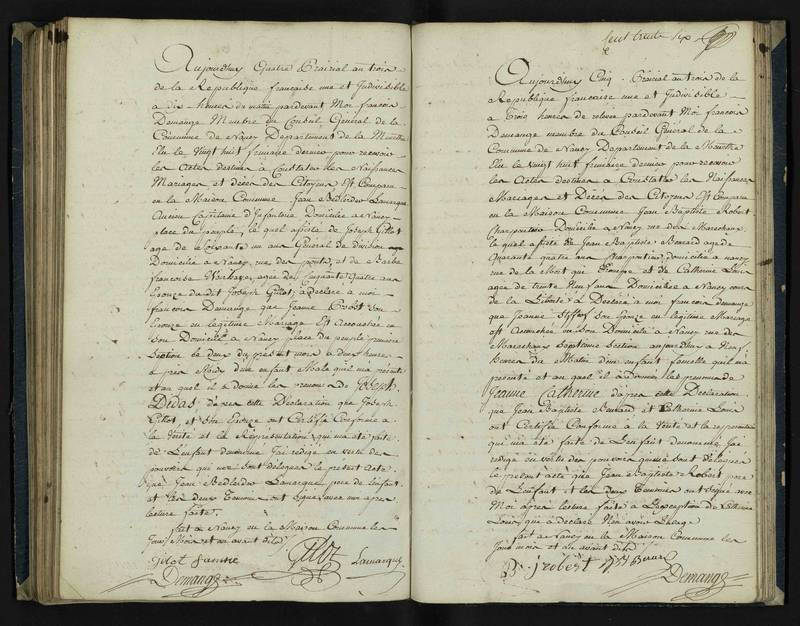 Aujourdhuy Quatre Prairial an trois
de la Republique française une et Indivisible
a dix heures du matin pardevant Moi françois
Demange Membre du Conseil Général de la
Commune de Nancy Département de la Meurthe
Elu le vingt huit frimaire dernier pour recevoir
les Actes destinés a Constater les Naissances
Mariages et Décès des Citoyens Est Comparu
en la Maison Commune Jean Lamarque
Capitaine d'Infanterie Domicilié a Nancy
place du peuple, le quel assisté de Joseph Gillot
agé de soixante un ans Général de division
Domicilié a Nancy rue des ponts, et de Barbe
françoise agée de Cinquante quatre ans
Epouze du dit Joseph Gillot, a déclaré a moi
françois Demange que Jeanne son
Epouze en légitime Mariage Est Accouchée en
son Domicile a Nancy place du peuple
Section le deux du présent mois a deux heures
après Midy d'un enfant Male qu'il m'a présenté
et au quel il a donné les prénoms de Joseph
Didas, d'après cette Déclaration que Joseph
Gillot, et son Epouze ont Certifié Conforme a
la Vérité et la Représentation qui m'a été faite
de l'Enfant denommé J'ai redigé en vertu des
pouvoirs qui me sont délégués le présent Acte
que Jean Lamarque pere de l'enfant
et les deux Temoins ont signé avec moi après
lecture faite.
fait a Nancy en la Maison Commune les
Jour Mois et an avant dits
Gilot Gilot Lamarque
Demange
cent trente six
Aujourdhuy Cinq Prairial an trois de la
Republique francaise une et Indivisible
a Trois heures de relevée pardevant Moi françois
Demange membre du Conseil Général de la
Commune de Nancy Departement de la Meurthe
Elu le vingt huit frimaire dernier pour recevoir
les Actes destinés a Constater les Naissances
Mariages et Décès des Citoyens Est Comparu
en la Maison Commune Jean Baptiste Robert
Charpentier Domicilié a Nancy rue des Marechaux
le quel assisté de Jean Baptiste agé de
Quarante quatre ans Charpentier, domicilié a nancy
rue de la et de Catherine
agée de trente Neuf ans Domiciliée a Nancy cours
de la Liberté a Déclaré a moi françois demange
que Jeanne son Epouze en légitime Mariage
est accouchée en son Domicile a Nancy rue des
Marechaux Septieme Section aujourdhuy a Neuf
heures du Matin d'un enfant femelle qu'il m'a
présenté et au quel il a donné les prenoms de
Jeanne Catherine d'après cette Declaration
que Jean Baptiste et Catherine
ont Certifié Conforme a la Vérité et la représentation
qui m'a été faite de L'enfant denommé, J'ai
redigé en vertu des pouvoirs qui me sont délégués
le présent acte que Jean Baptiste Robert pere
de L'enfant et les deux Temoins ont signé avec
Moi après lecture faite a L'exception de Catherine
qui a déclaré
fait a Nancy en la Maison Commune les
Jour mois et an avant dits
robert
Demange